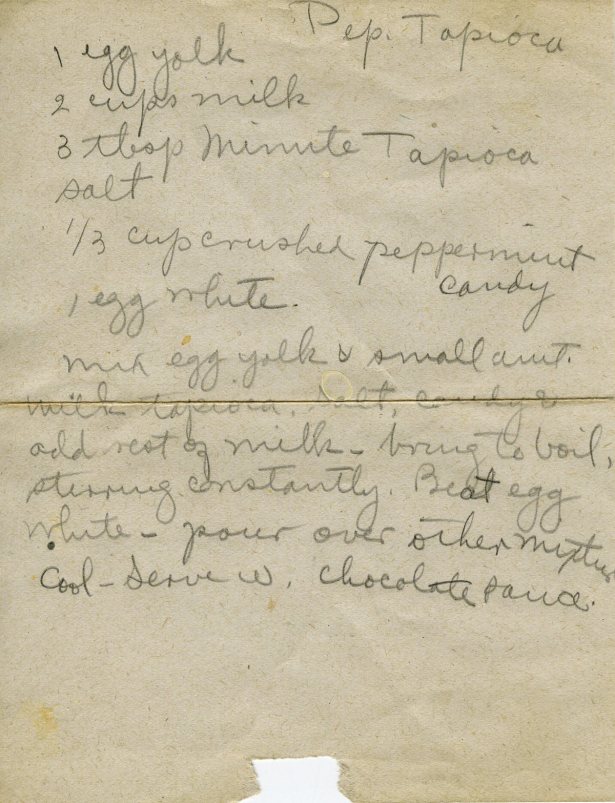 Pep. Tapioca
1 egg yolk
2 cups milk
3 tbsp Minute Tapioca
salt
1/3 cup crushed peppermint
candy
1 egg white.
mix egg yolk & small amt.
milk tapioca, salt, candy &
add rest of milk - bring to boil,
stirring constantly. Beat egg
white - pour over other mixture
Cool - Serve w. chocolate sauce.